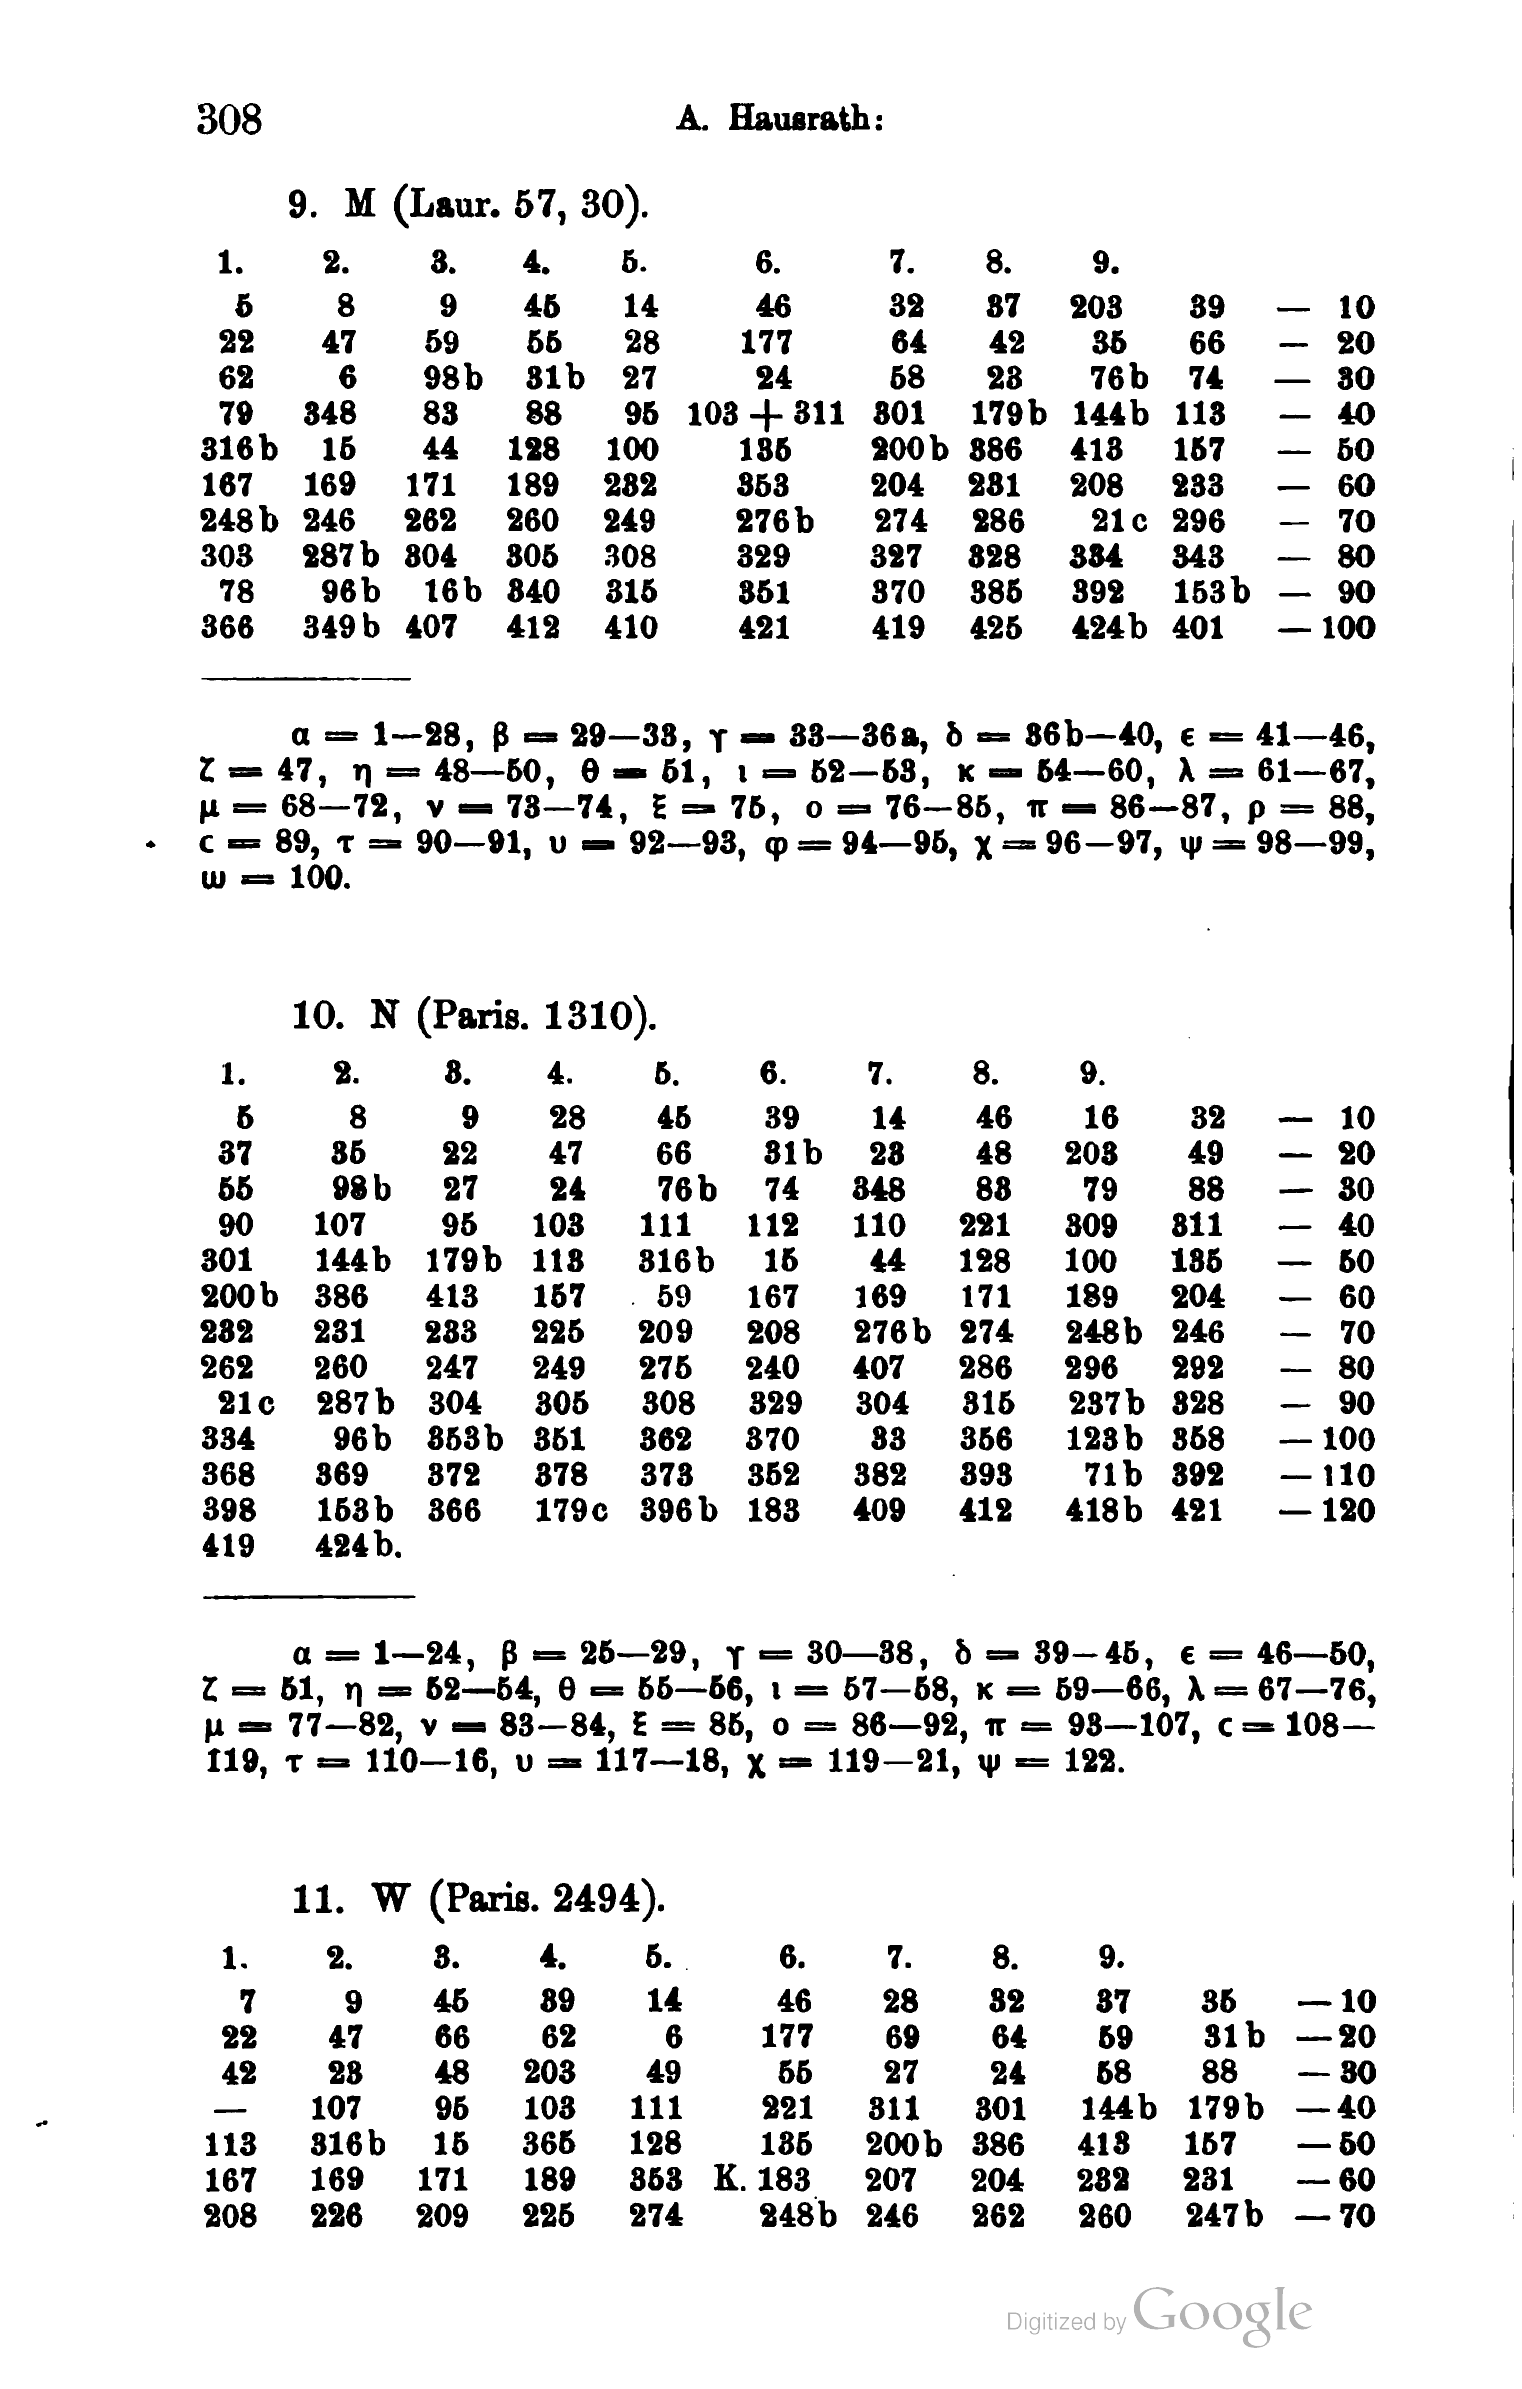 308 A. Hausrath:
9. M (Laur. 57, 30).
1. 2. 3. 4. 5. 6. 7. 8. 9.
5 8 9 45 14 46 32 37 203 39 — 10
22 47 59 55 28 177 64 42 35 66 — 20
62 6 98b 31b 27 24 58 23 76b 74 — 30
79 348 83 88 95 103 + 311 301 179b 144b 113 — 40
316b 15 44 128 100 135 200b 386 413 157 — 50
167 169 171 189 232 353 204 231 208 233 — 60
248b 246 262 260 249 276b 274 286 21c 296 — 70
303 287b 304 305 308 329 327 328 334 343 — 80
78 96b 16b 340 315 351 370 385 392 153b — 90
366 349b 407 412 410 421 419 425 424b 401 — 100
α = 1—28, β = 29—33, γ = 33—36a, δ = 36b—40, ε = 41—46,
ζ = 47, η = 48—50, θ = 51, ι = 52—53, κ = 54—60, λ = 61—67,
μ = 68—72, ν = 73—74, ξ = 75, ο = 76—85, π = 86—87, ρ = 88,
c = 89, τ = 90—91, υ = 92—93, φ = 94—95, χ = 96—97, ψ = 98—99,
ω = 100.
10. N (Paris. 1310).
1. 2. 3. 4. 5. 6. 7. 8. 9.
5 8 9 28 45 39 14 46 16 32 — 10
37 35 22 47 66 31b 23 48 203 49 — 20
55 98b 27 24 76b 74 348 83 79 88 — 30
90 107 95 103 111 112 110 221 309 311 — 40
301 144b 179b 113 316b 15 44 128 100 135 — 50
200b 386 413 157 59 167 169 171 189 204 — 60
232 231 233 225 209 208 276b 274 248b 246 — 70
262 260 247 249 275 240 407 286 296 292 — 80
21c 287b 304 305 308 329 304 315 237b 328 — 90
334 96b 353b 351 362 370 33 356 123b 358 — 100
368 369 372 378 373 352 382 393 71b 392 — 110
398 153b 366 179c 396b 183 409 412 418b 421 — 120
419 424b.
α = 1—24, β = 25—29, γ = 30—38, δ = 39—45, ε = 46—50,
ζ = 51, η = 52—54, θ = 55—56, ι = 57—58, κ = 59—66, λ = 67—76,
μ = 77—82, ν = 83—84, ξ = 85, ο = 86—92, π = 93—107, c = 108—
119, τ = 110—16, υ = 117—18, χ = 119—21, ψ = 122.
11. W (Paris. 2494).
1. 2. 3. 4. 5. 6. 7. 8. 9.
7 9 45 39 14 46 28 32 37 35 — 10
22 47 66 62 6 177 69 64 59 31b — 20
42 23 48 203 49 55 27 24 58 88 — 30
— 107 95 103 111 221 311 301 144b 179b — 40
113 316b 15 365 128 135 200b 386 413 157 — 50
167 169 171 189 353 K. 183 207 204 232 231 — 60
208 226 209 225 274 248b 246 262 260 247b — 70
Digitized by Google